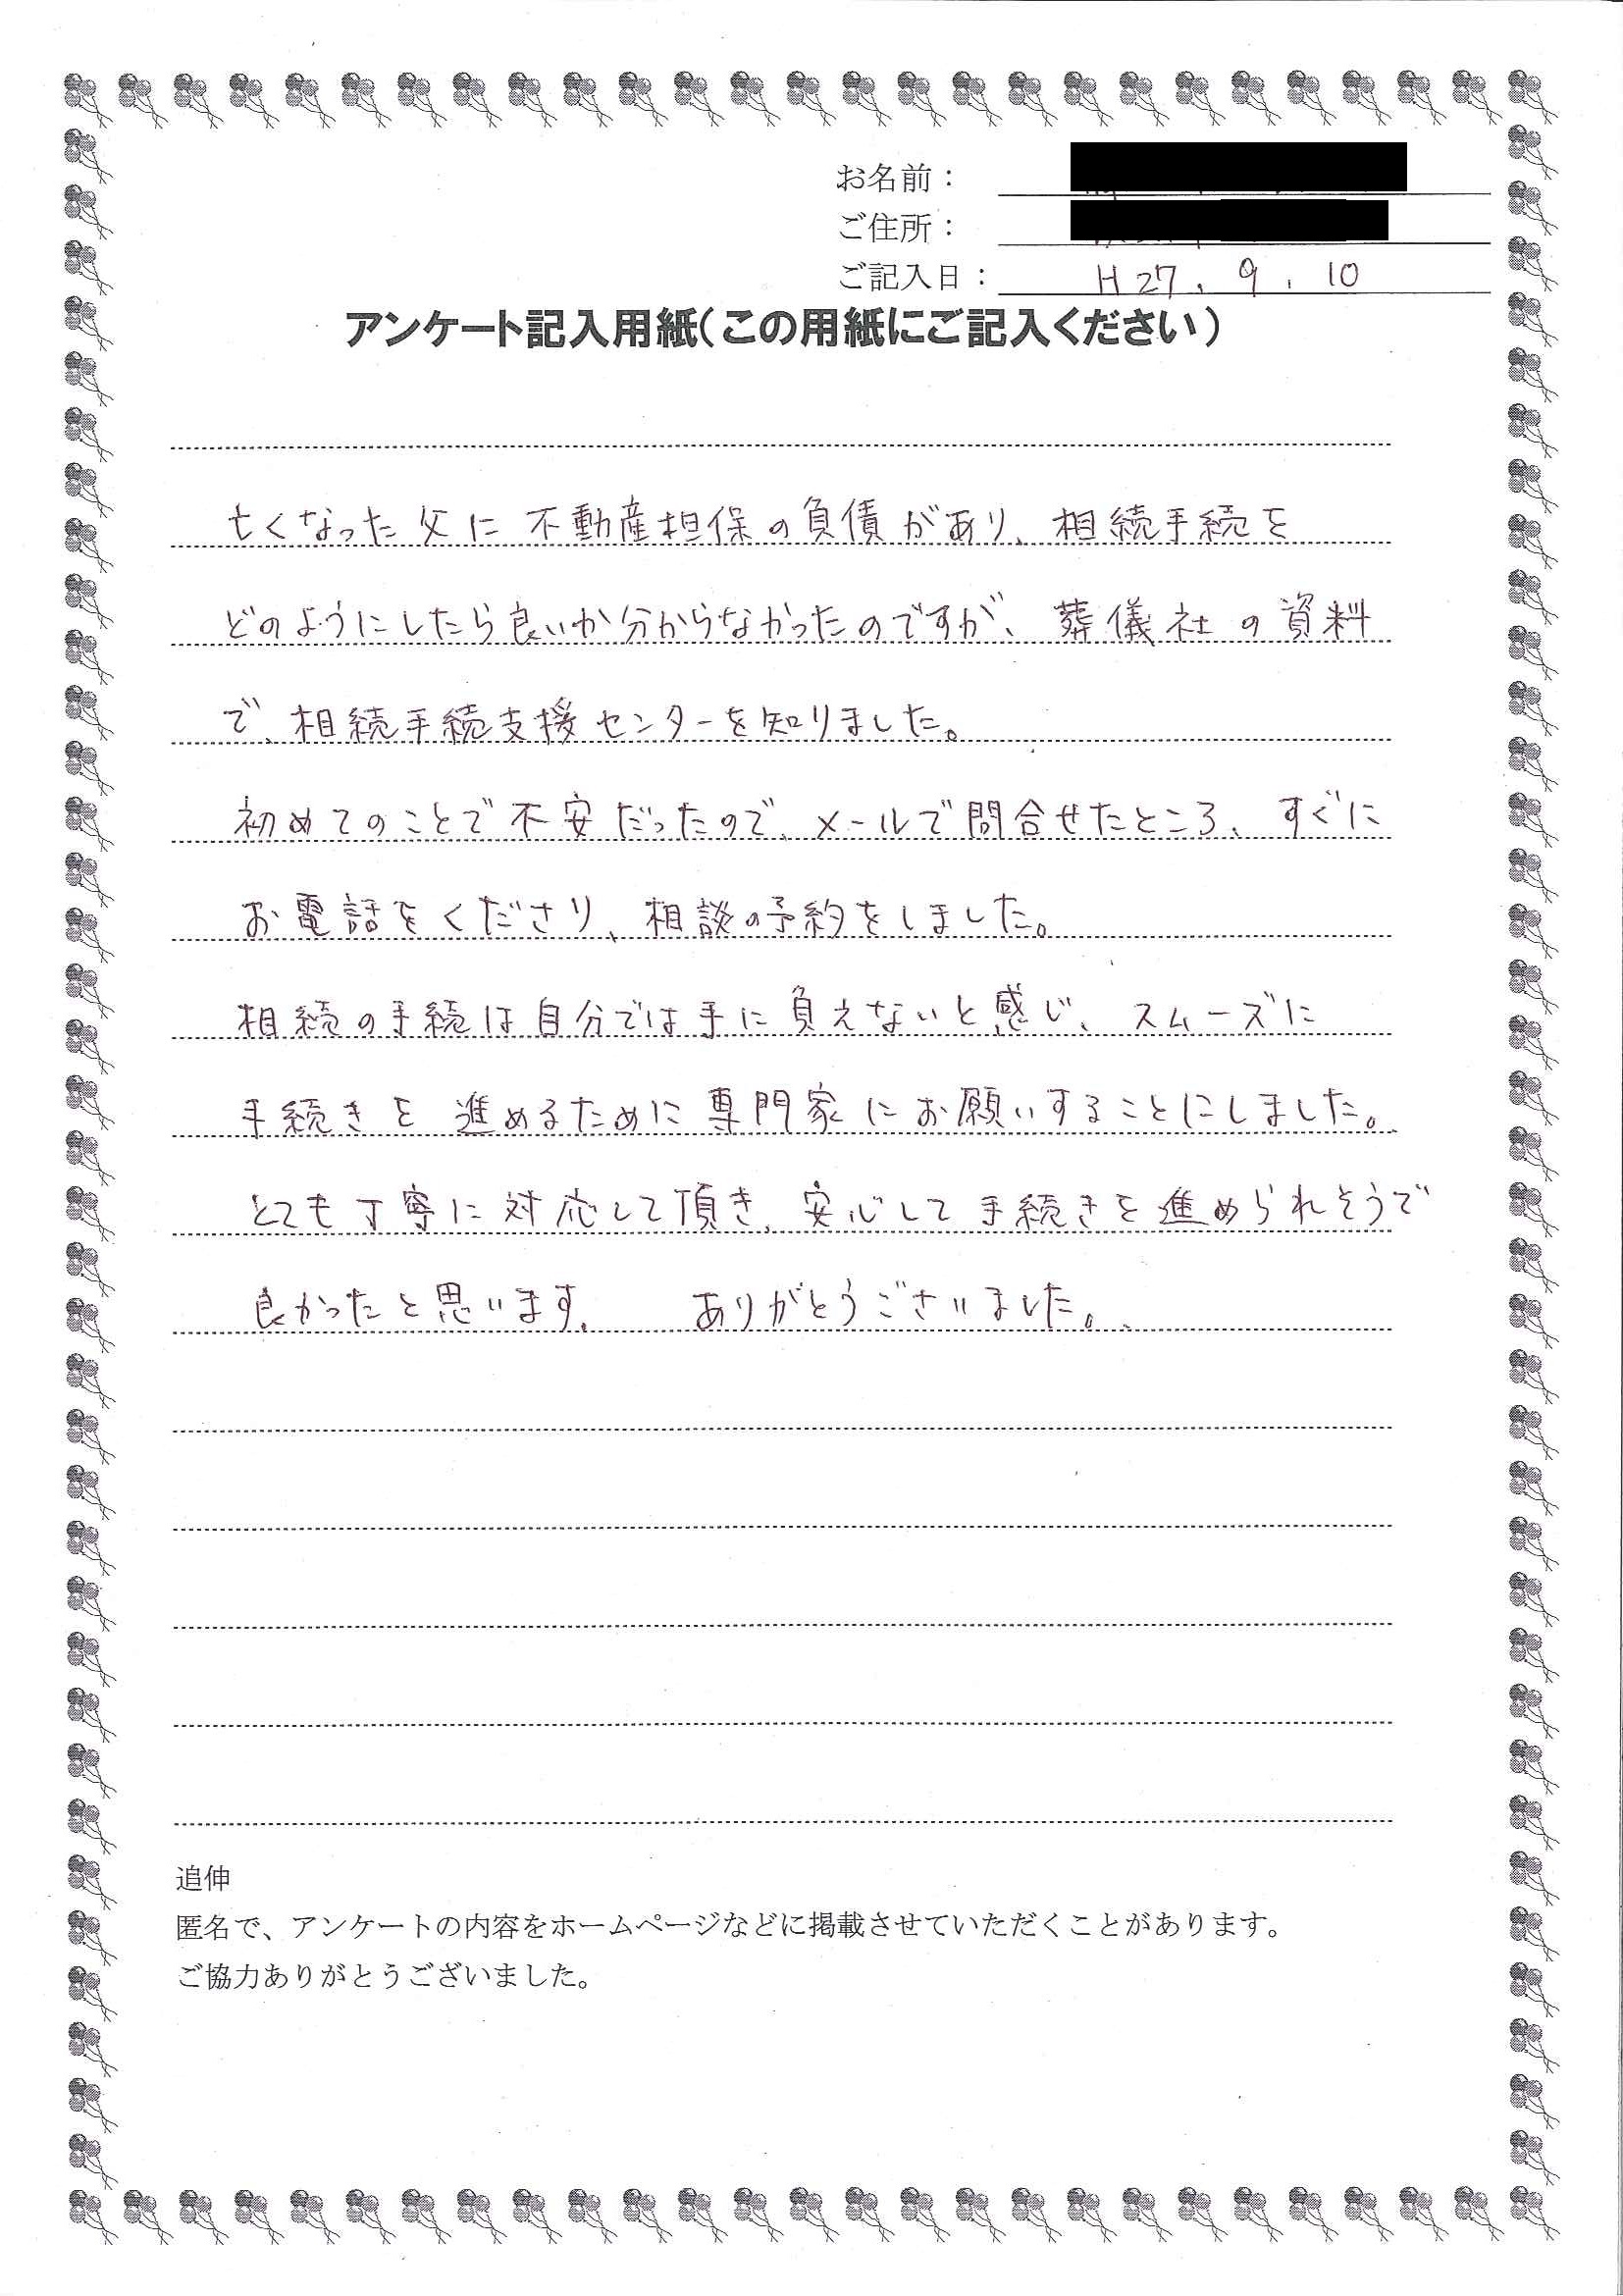 お名前：
ご住所：
ご記入日： H27. 9. 10
アンケート記入用紙(この用紙にご記入ください)
亡くなった父に不動産担保の負債があり、相続手続を
どのようにしたら良いか分からなかったのですが、葬儀社の資料
で、相続手続支援センターを知りました。
初めてのことで不安だったので、メールで問合せたところ、すぐに
お電話をくださり、相談の予約をしました。
相続の手続は自分では手に負えないと感じ、スムーズに
手続きを進めるために専門家にお願いすることにしました。
とても丁寧に対応して頂き、安心して手続きを進められそうで
良かったと思います。 ありがとうございました。
追伸
匿名で、アンケートの内容をホームページなどに掲載させていただくことがあります。
ご協力ありがとうございました。